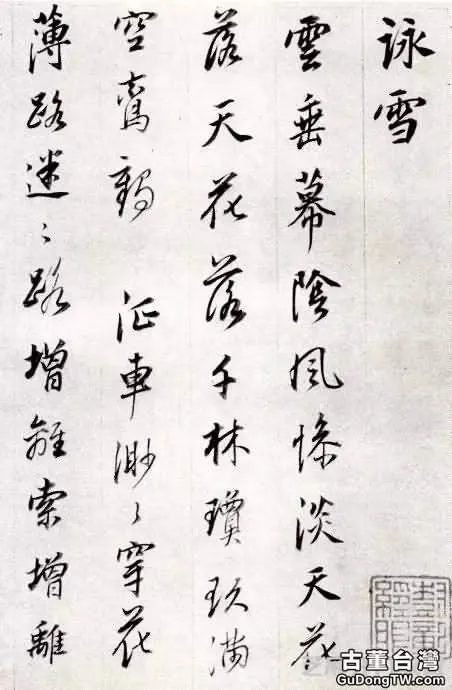 詠雪
雲垂幕陰風慘淡天花
落天花落千林瓊玖滿
空鸞鶴 征車渺〻穿花
薄路迷〻路增離索增離
古董台灣
GuDongTW.com